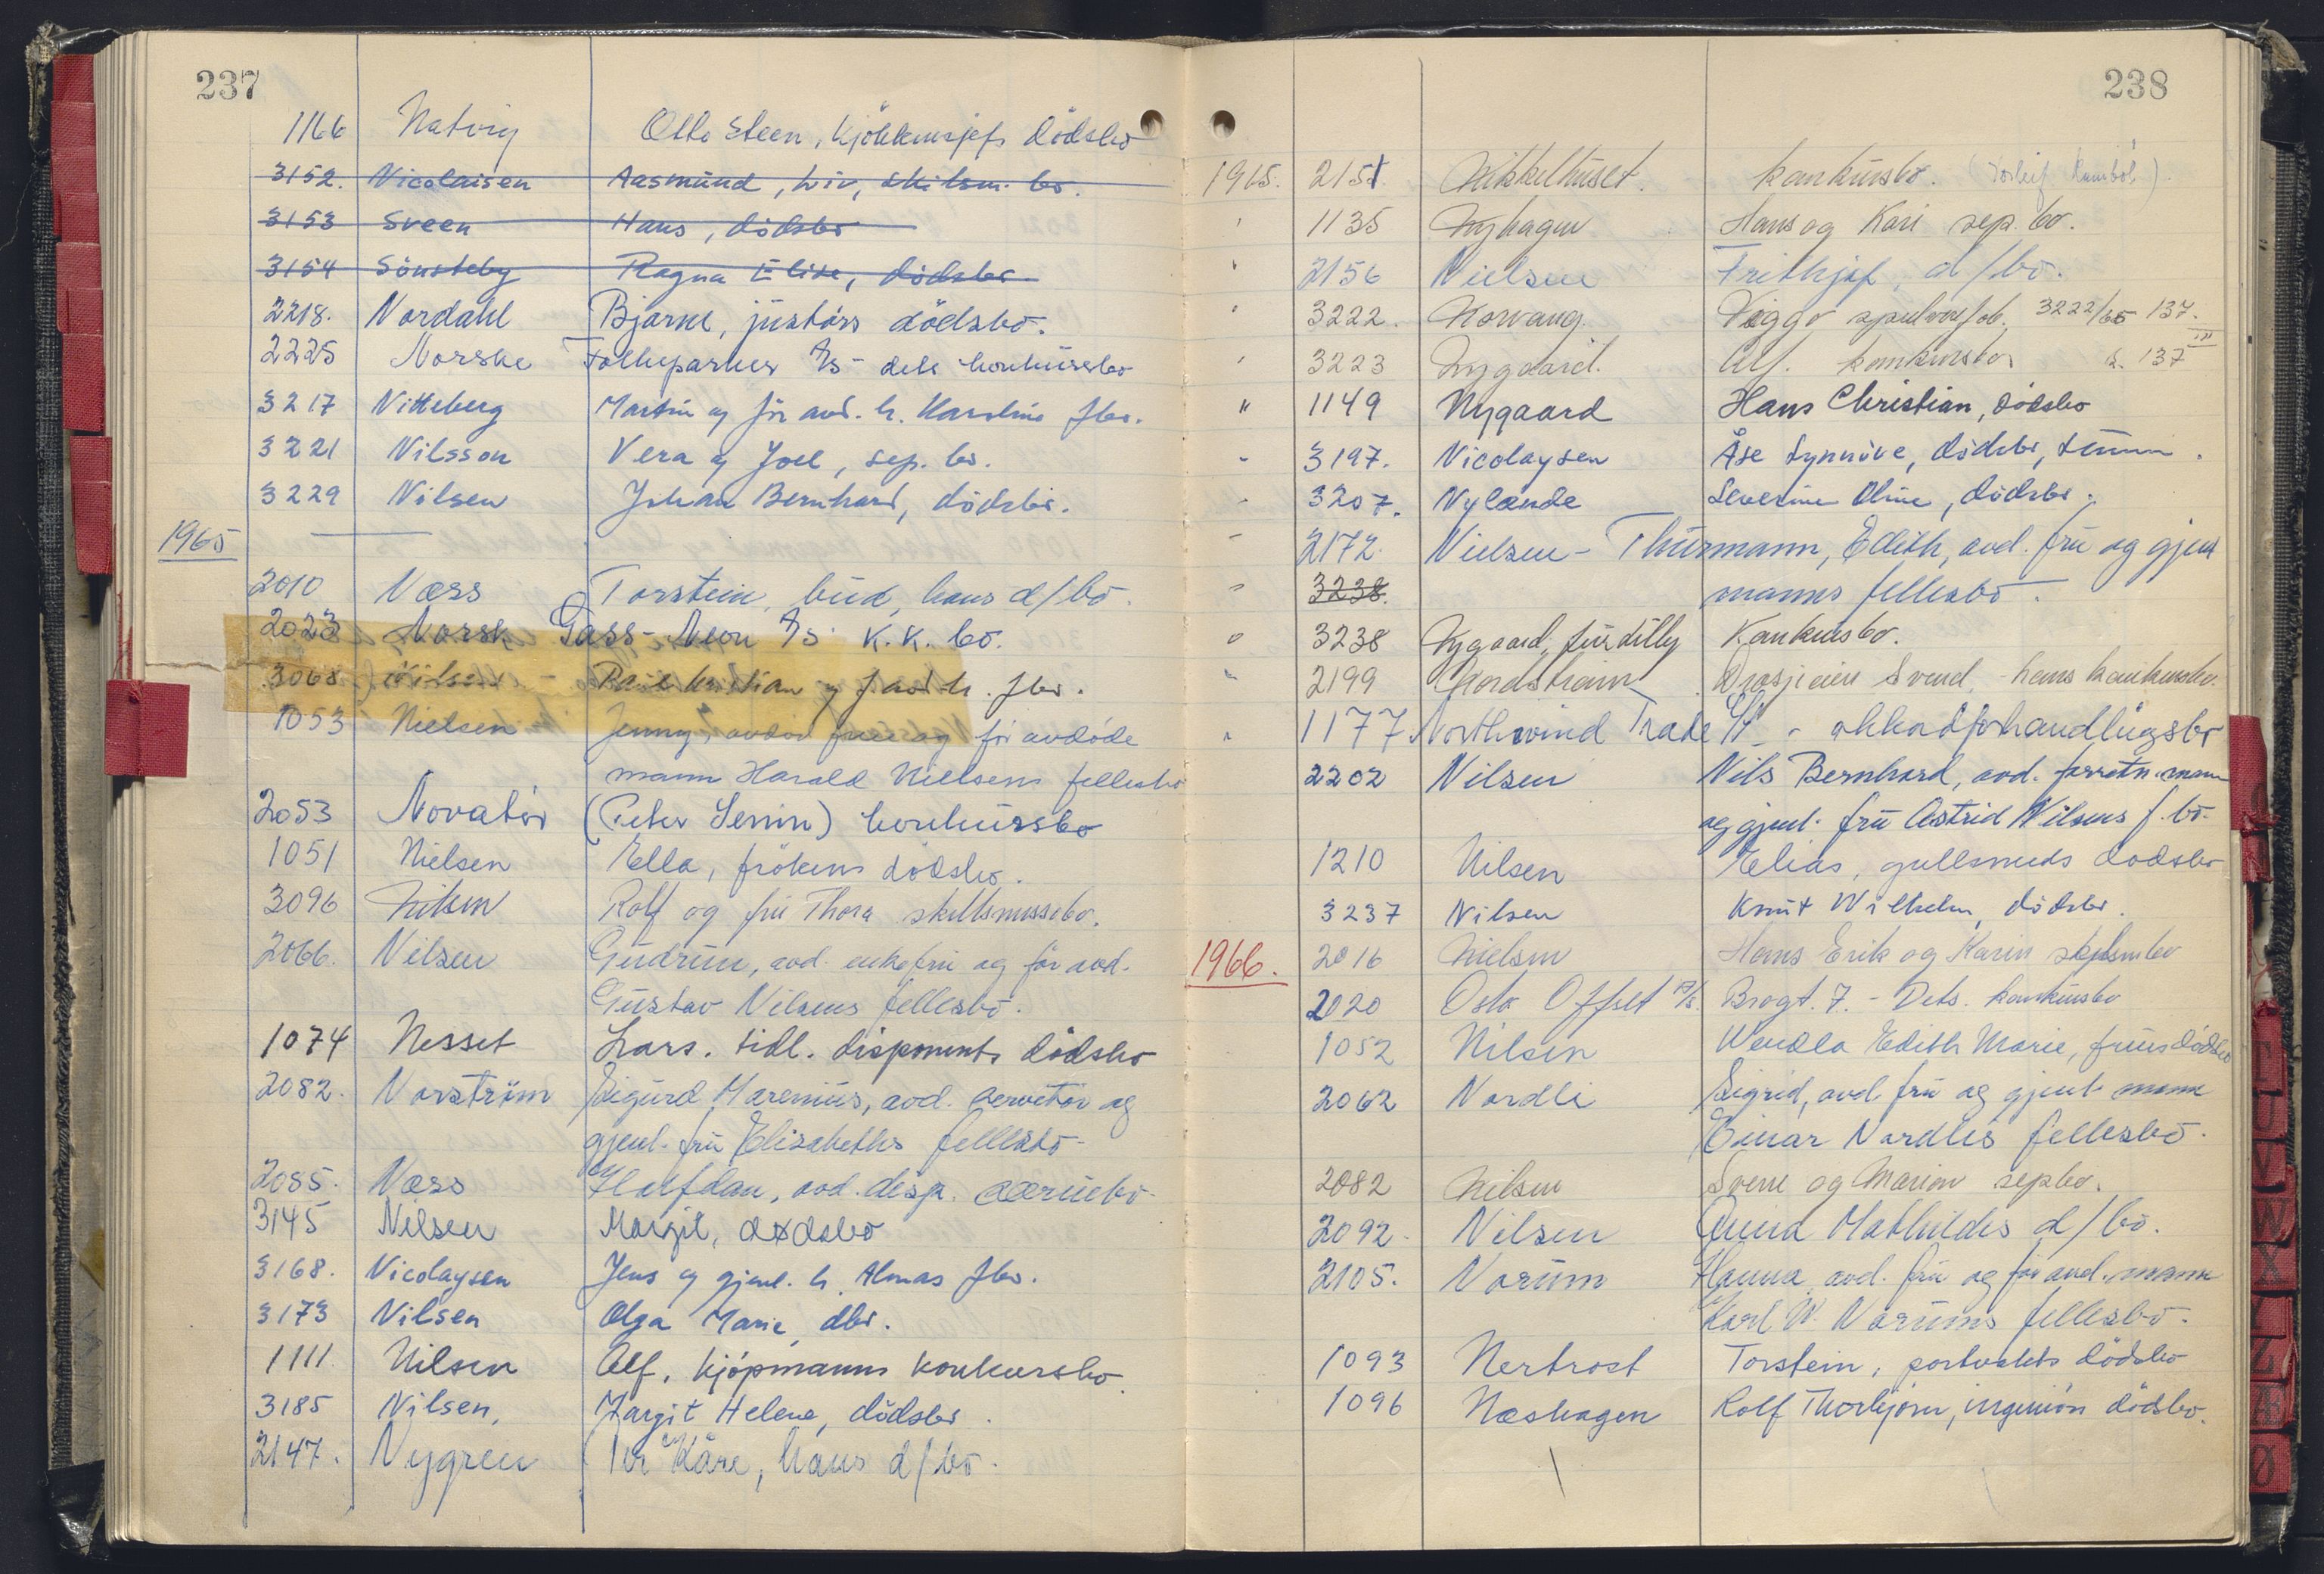 237
1166 Natvig Otto Steen, kjökkensjefs dödsbo
3152. Nicolaisen Aasmund, Liv, skilsm. bo.
3153 Sveen Hans, dödsbo
3154 Sönsteby Ragna Elise, dödsbo
2218. Nordahl Bjarne, justörs dödsbo.
2225 Norske Folkeparker A/s - dets konkursbo
3217 Nitteberg Martin og för avd. h. Karoline fbo.
3221 Nilsson Vera og Joel, sep. bo.
3229 Nilsen Johan Bernhard, dödsbo.
1965
2010 Næss Torstein, bud, hans d/bo.
2023 Norsk Gass-Neon A/s K.K. bo.
3068 Nilsen - Paul Kristian og f. avd. h. fbo.
1053 Nielsen Jenny, avdød frue og för avdöde
mann Harald Nielsens fellesbo
2053 Novatör (Peter Lenin) konkursbo
1051 Nielsen Ella, frökens dödsbo.
3096 Nilsen Rolf og fru Thora skillsmissebo.
2066. Nilsen Gudrun, avd. enkefru og för avd.
Gustav Nilsens fellesbo.
1074 Nesset Lars. tidl. disponents dödsbo
2082. Norström Sigurd Marenius, avd. servitör og
gjenl. fru Elisabeths fellesbo-
2085. Næss Halfdan, avd. disp. særbo-
3145 Nilsen Margit, dødsbo
3168. Nicolaysen Jens og gjenl. h. Almas fbo.
3173 Nilsen Olga Marie, dbo.
1111. Nilsen Alf, kjöpmanns konkursbo.
3185 Nilsen, Margit Helene, dödsbo.
2147. Nygren Per Kåre, hans d/bo.
238
1965. 2151 Nikkelhuset. konkursbo.
" 1135 Nyhagen Hans og Kari sep. bo.
" 2156 Nielsen Frithjof, d/bo.
" 3222. Norvang. Viggo 3222/65 137.
" 3223 Nygaard. Alf. konkursbo s. 137 III
" 1149 Nygaard Hans Christian, dödsbo
" 3197. Nicolaysen Åse Synnöve, dödsbo,
" 3207. Nylende Severine Oline, dödsbo.
" 2172. Nielsen - Thurmann, Edith, avd. fru og gjenl
" 3238. manns fellesbo.
" 3238 Nygaard, fru Lilly Konkursbo.
" 2199 Nordstrøm Drosjeeier Svend, hans konkursbo.
" 1177 Northwind Trade A/s - akkordforhandlingsbo
2202 Nilsen Nils Bernhard, avd. forretn.mann
og gjenl. fru Astrid Nilsens f.bo.
1210 Nilsen Elias, gullsmeds dödsbo
3237 Nilsen Knut Wilhelm, dödsbo.
1966. 2016 Nielsen Hans Erik og Karin skilsmbo
2020 Oslo Offset A/s. Brogt. 7. - Dets. konkursbo
1052 Nilsen Wendla Edith Marie, frues dödsbo
2062 Nordli Sigrid, avd. fru og gjenl. mann
Einar Nordlis fellesbo.
2082 Nilsen Sverre og Marion sepbo.
2092. Nilsen Anna Mathildes d/bo.
2105. Norum Hanna avd. fru og för avd. mann
Karl W. Norums fellesbo.
1093 Nertrost Torstein, portvakts dödsbo
1096 Næshagen Rolf Thorbjørn, ingeniørs dödsbo.
F
U
V
W
X
Y
Z
Æ
Ø